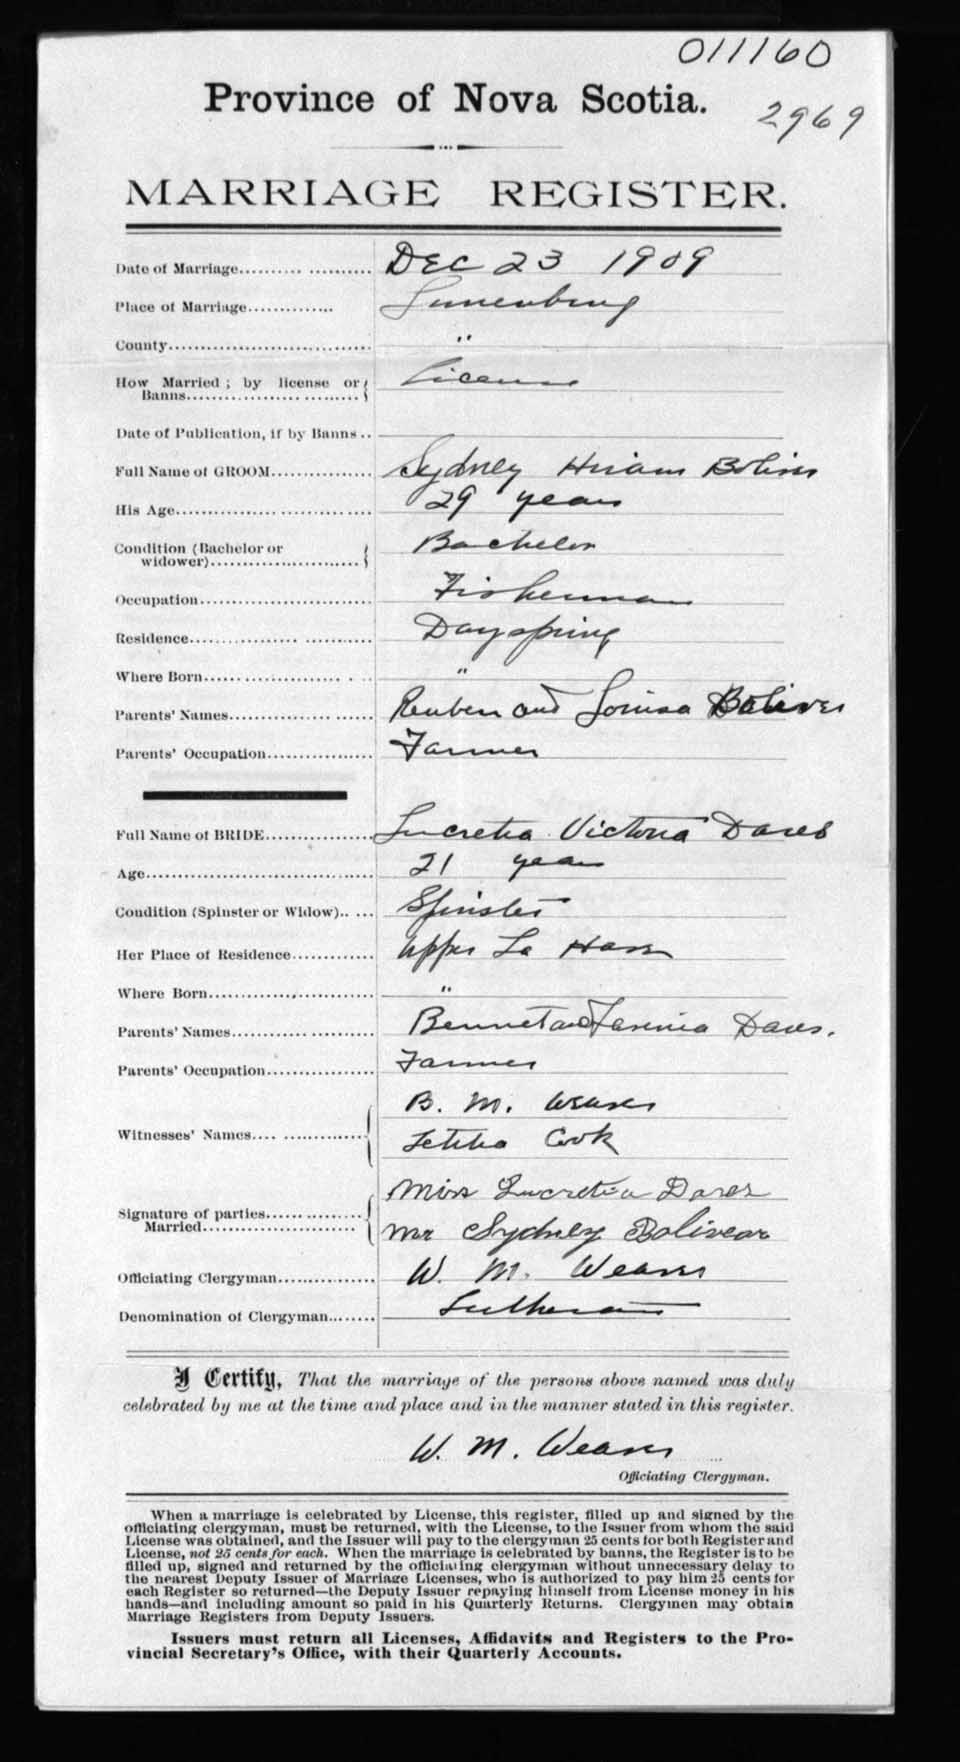 011160
Province of Nova Scotia.
2969
MARRIAGE REGISTER.
Date of Marriage..................... DEC 23 1909
Place of Marriage............. Lunenburg
County............................... "
How Married; by license or License
Banns.............................
Date of Publication, if by Banns ..
Full Name of GROOM............... Sydney Hiram Boliver
His Age.............................. 29 years
Condition (Bachelor or Bachelor
widower).........................
Occupation.......................... Fisherman
Residence........................... Dayspring
Where Born........................ "
Parents' Names..................... Reuben and Louisa Boliver
Parents' Occupation................. Farmer
Full Name of BRIDE................ Lucretia Victoria Dares
Age................................... 21 years
Condition (Spinster or Widow)..... Spinster
Her Place of Residence............. Upper La Have
Where Born......................... "
Parents' Names..................... Bennet and Dares.
Parents' Occupation................. Farmer
B. M. Weaver
Witnesses' Names.................
Letitia Cook
Miss Lucretia Dares
Signature of parties...............
Married........................ Mr Sydney Bolivear
Officiating Clergyman.............. W. M. Weaver
Denomination of Clergyman........ Lutheran
I Certify, That the marriage of the persons above named was duly
celebrated by me at the time and place and in the manner stated in this register.
W. M. Weaver
Officiating Clergyman.
When a marriage is celebrated by License, this register, filled up and signed by the
officiating clergyman, must be returned, with the License, to the Issuer from whom the said
License was obtained, and the Issuer will pay to the clergyman 25 cents for both Register and
License, not 25 cents for each. When the marriage is celebrated by banns, the Register is to be
filled up, signed and returned by the officiating clergyman without unnecessary delay to
the nearest Deputy Issuer of Marriage Licenses, who is authorized to pay him 25 cents for
each Register so returned—the Deputy Issuer repaying himself from License money in his
hands—and including amount so paid in his Quarterly Returns. Clergymen may obtain
Marriage Registers from Deputy Issuers.
Issuers must return all Licenses, Affidavits and Registers to the Pro-
vincial Secretary's Office, with their Quarterly Accounts.